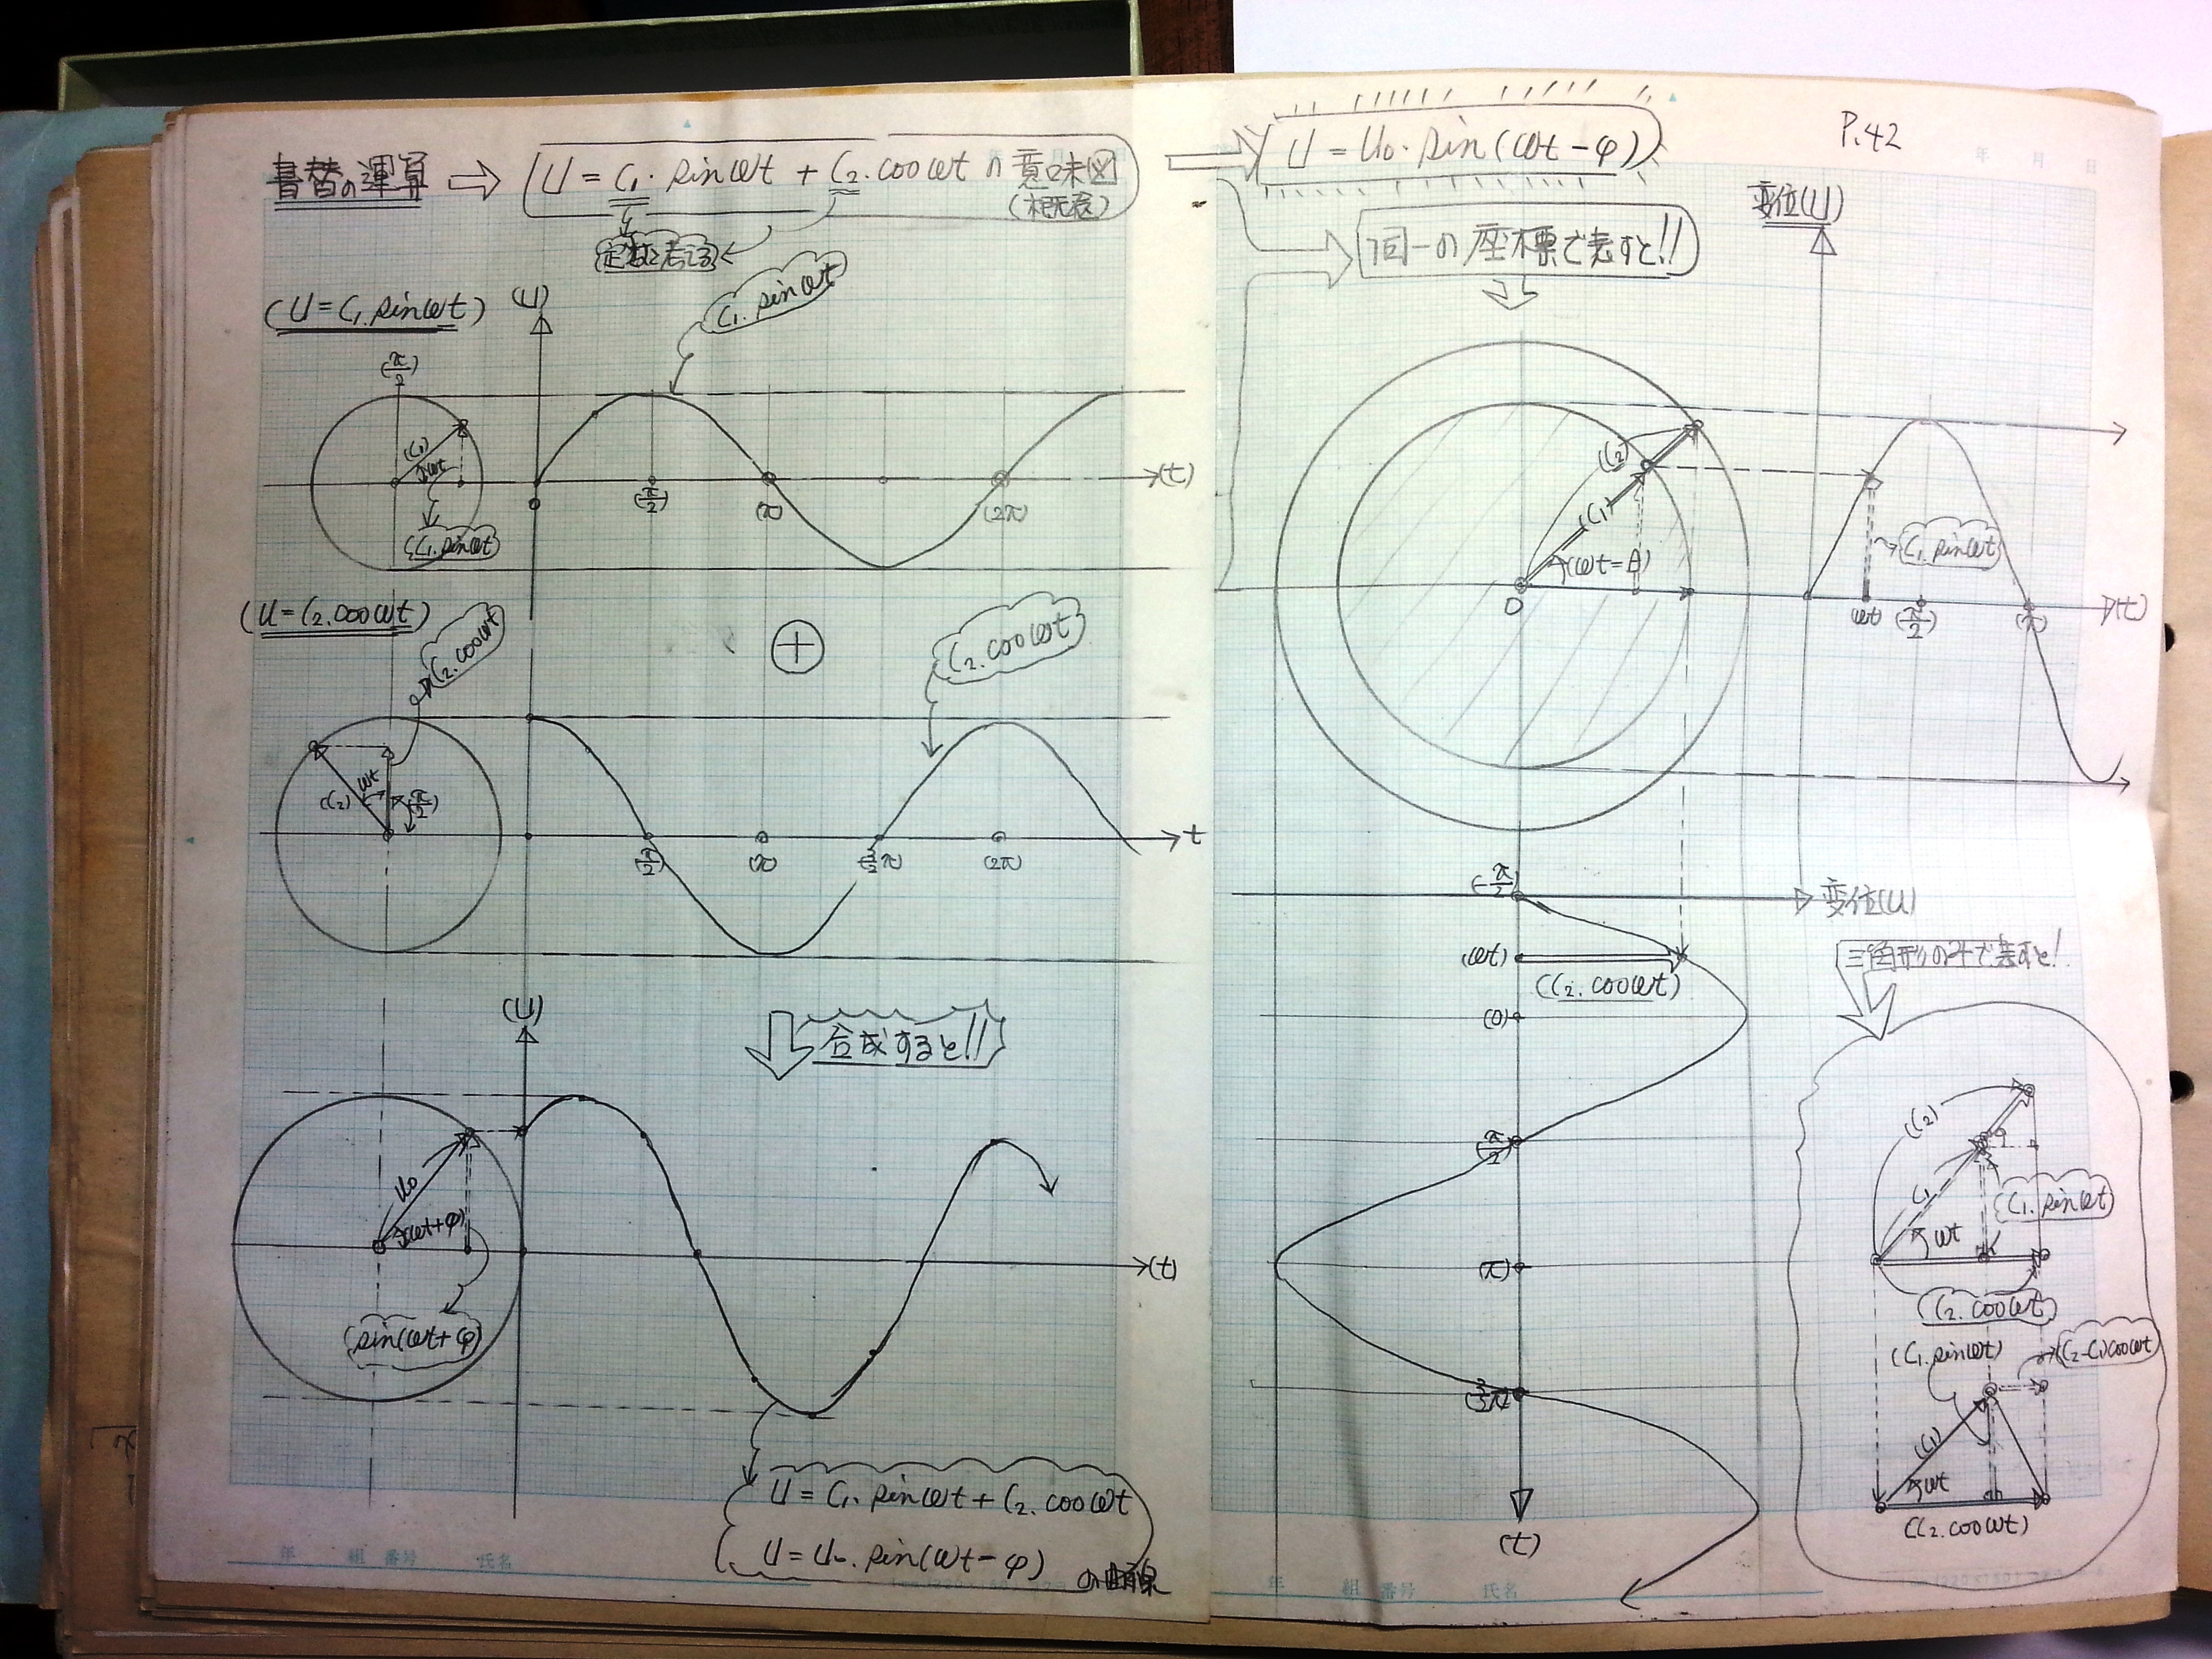 書替の運算 ⇒ U = C₁・sinωt + C₂・cosωt の意味図
(概容)
定数と考える
(U = C₁・sinωt)
(U)
C₁・sinωt
(π/2)
(C₁)
ωt
(C₁・sinωt)
0
(π/2)
(π)
(2π)
(t)
(U = C₂・cosωt)
C₂・cosωt
⊕
C₂・cosωt
(C₂)
ωt
(π/2)
(π/2)
(π)
(3/2π)
(2π)
t
(U)
合成すると!!
U₀
(ωt+φ)
sin(ωt+φ)
(t)
U = C₁・sinωt + C₂・cosωt
U = U₀・sin(ωt-φ) の曲線
年 組 番号 氏名
P.42
U = U₀・sin(ωt-φ)
年 月 日
同一の座標で表すと!!
変位(U)
(C₂)
(C₁)
(ωt=θ)
0
C₁・sinωt
ωt
(π/2)
(π)
(t)
(-π/2)
変位(U)
(ωt)
(C₂・cosωt)
(0)
(π/2)
(π)
(3/2π)
(t)
三角形のみで表すと!
(C₂)
C₁
ωt
C₁・sinωt
C₂・cosωt
(C₁・sinωt)
(C₂-C₁)cosωt
(C₁)
ωt
(C₂・cosωt)
年 組 番号 氏名